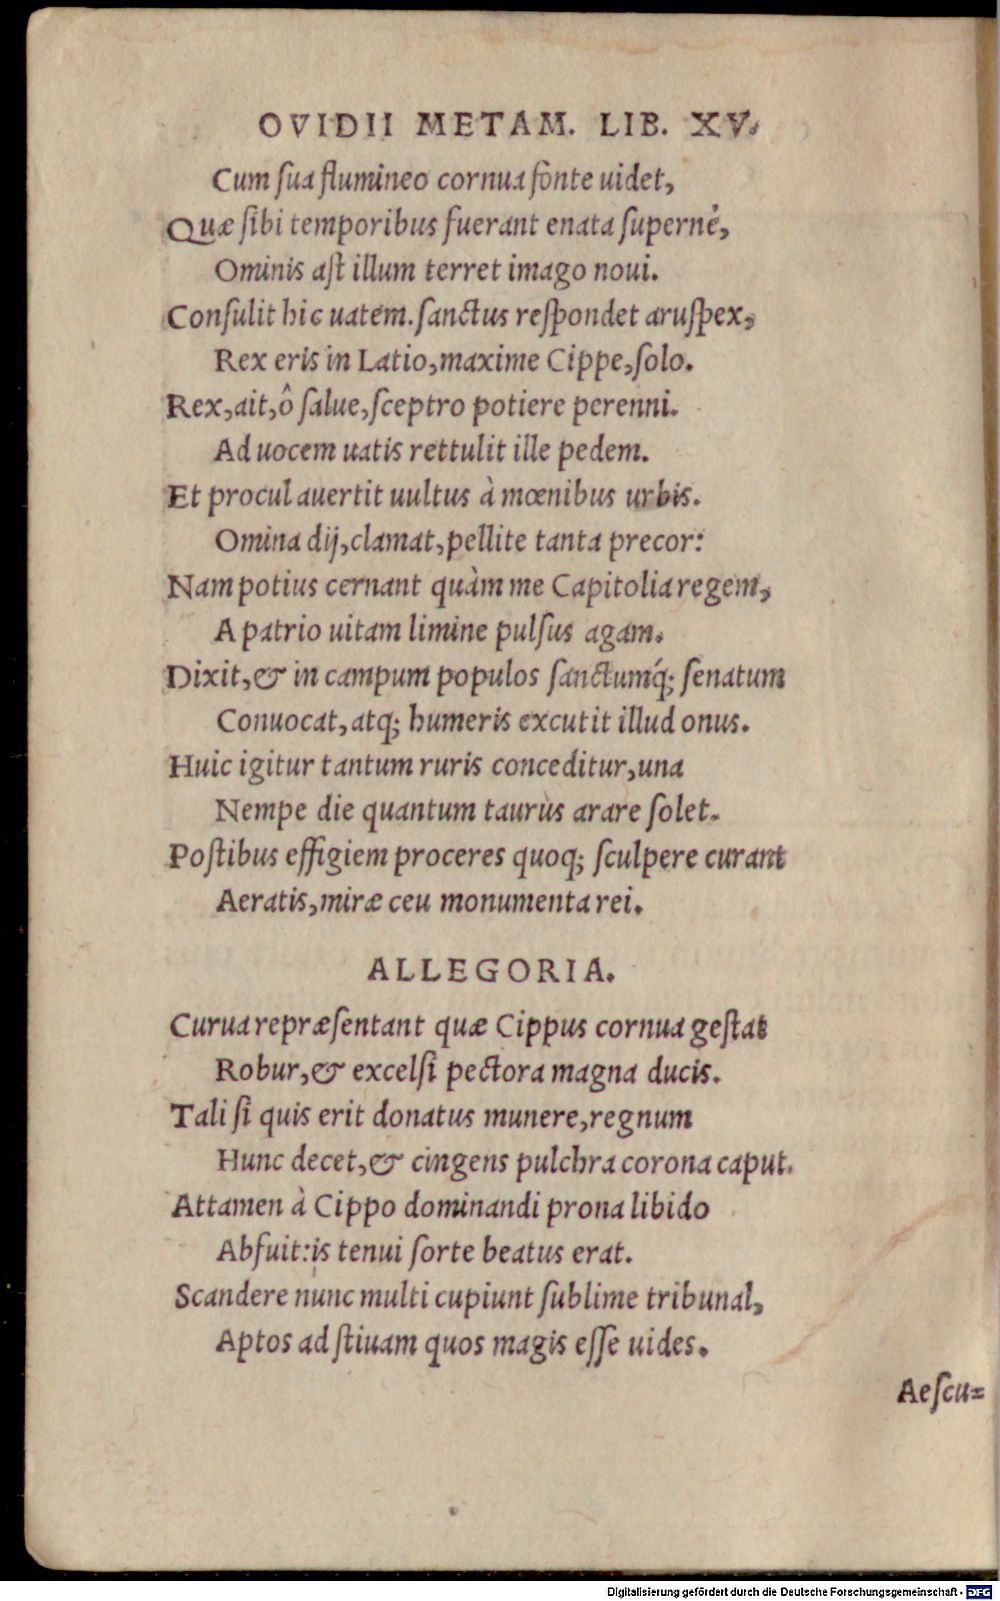 OVIDII METAM. LIB. XV.
Cum ſua flumineo cornua fonte uidet,
Quæ ſibi temporibus fuerant enata ſupernè,
Ominis aſt illum terret imago noui.
Conſulit hic uatem. ſanctus reſpondet aruſpex,
Rex eris in Latio, maxime Cippe, ſolo.
Rex, ait, ô ſalue, ſceptro potiere perenni.
Ad uocem uatis rettulit ille pedem.
Et procul auertit uultus à mœnibus urbis.
Omina dij, clamat, pellite tanta precor:
Nam potius cernant quàm me Capitolia regem,
A patrio uitam limine pulſus agam.
Dixit, & in campum populos ſanctumq́; ſenatum
Conuocat, atq; humeris excutit illud onus.
Huic igitur tantum ruris conceditur, una
Nempe die quantum taurus arare ſolet.
Poſtibus effigiem proceres quoq; ſculpere curant
Aeratis, miræ ceu monumenta rei.
ALLEGORIA.
Curua repræſentant quæ Cippus cornua geſtat
Robur, & excelſi pectora magna ducis.
Tali ſi quis erit donatus munere, regnum
Hunc decet, & cingens pulchra corona caput.
Attamen à Cippo dominandi prona libido
Abfuit: is tenui ſorte beatus erat.
Scandere nunc multi cupiunt ſublime tribunal,
Aptos ad ſtiuam quos magis eſſe uides.
Aeſcu=
Digitalisierung gefördert durch die Deutsche Forschungsgemeinschaft - DFG